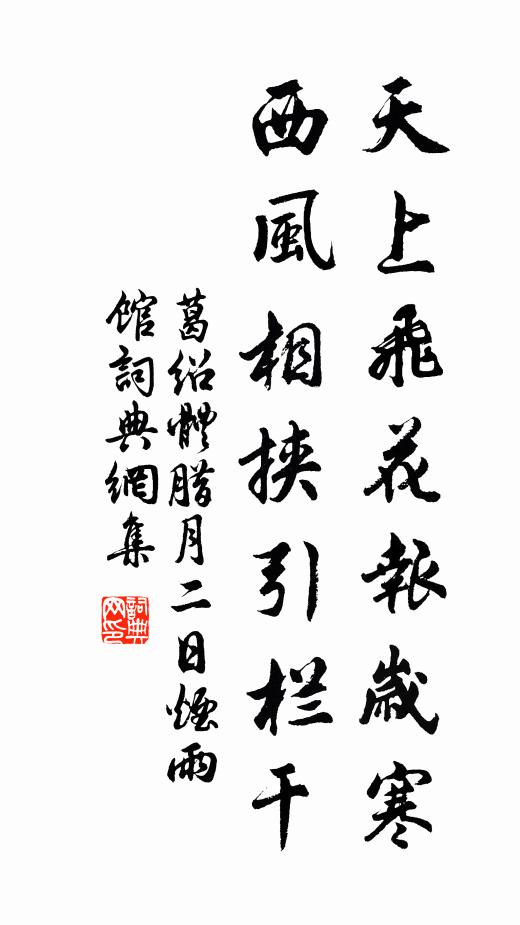 天上飛花報歲寒
西風相挾引栏干
葛绍體腊月二日煙雨
馆詞典網集
詞典网印